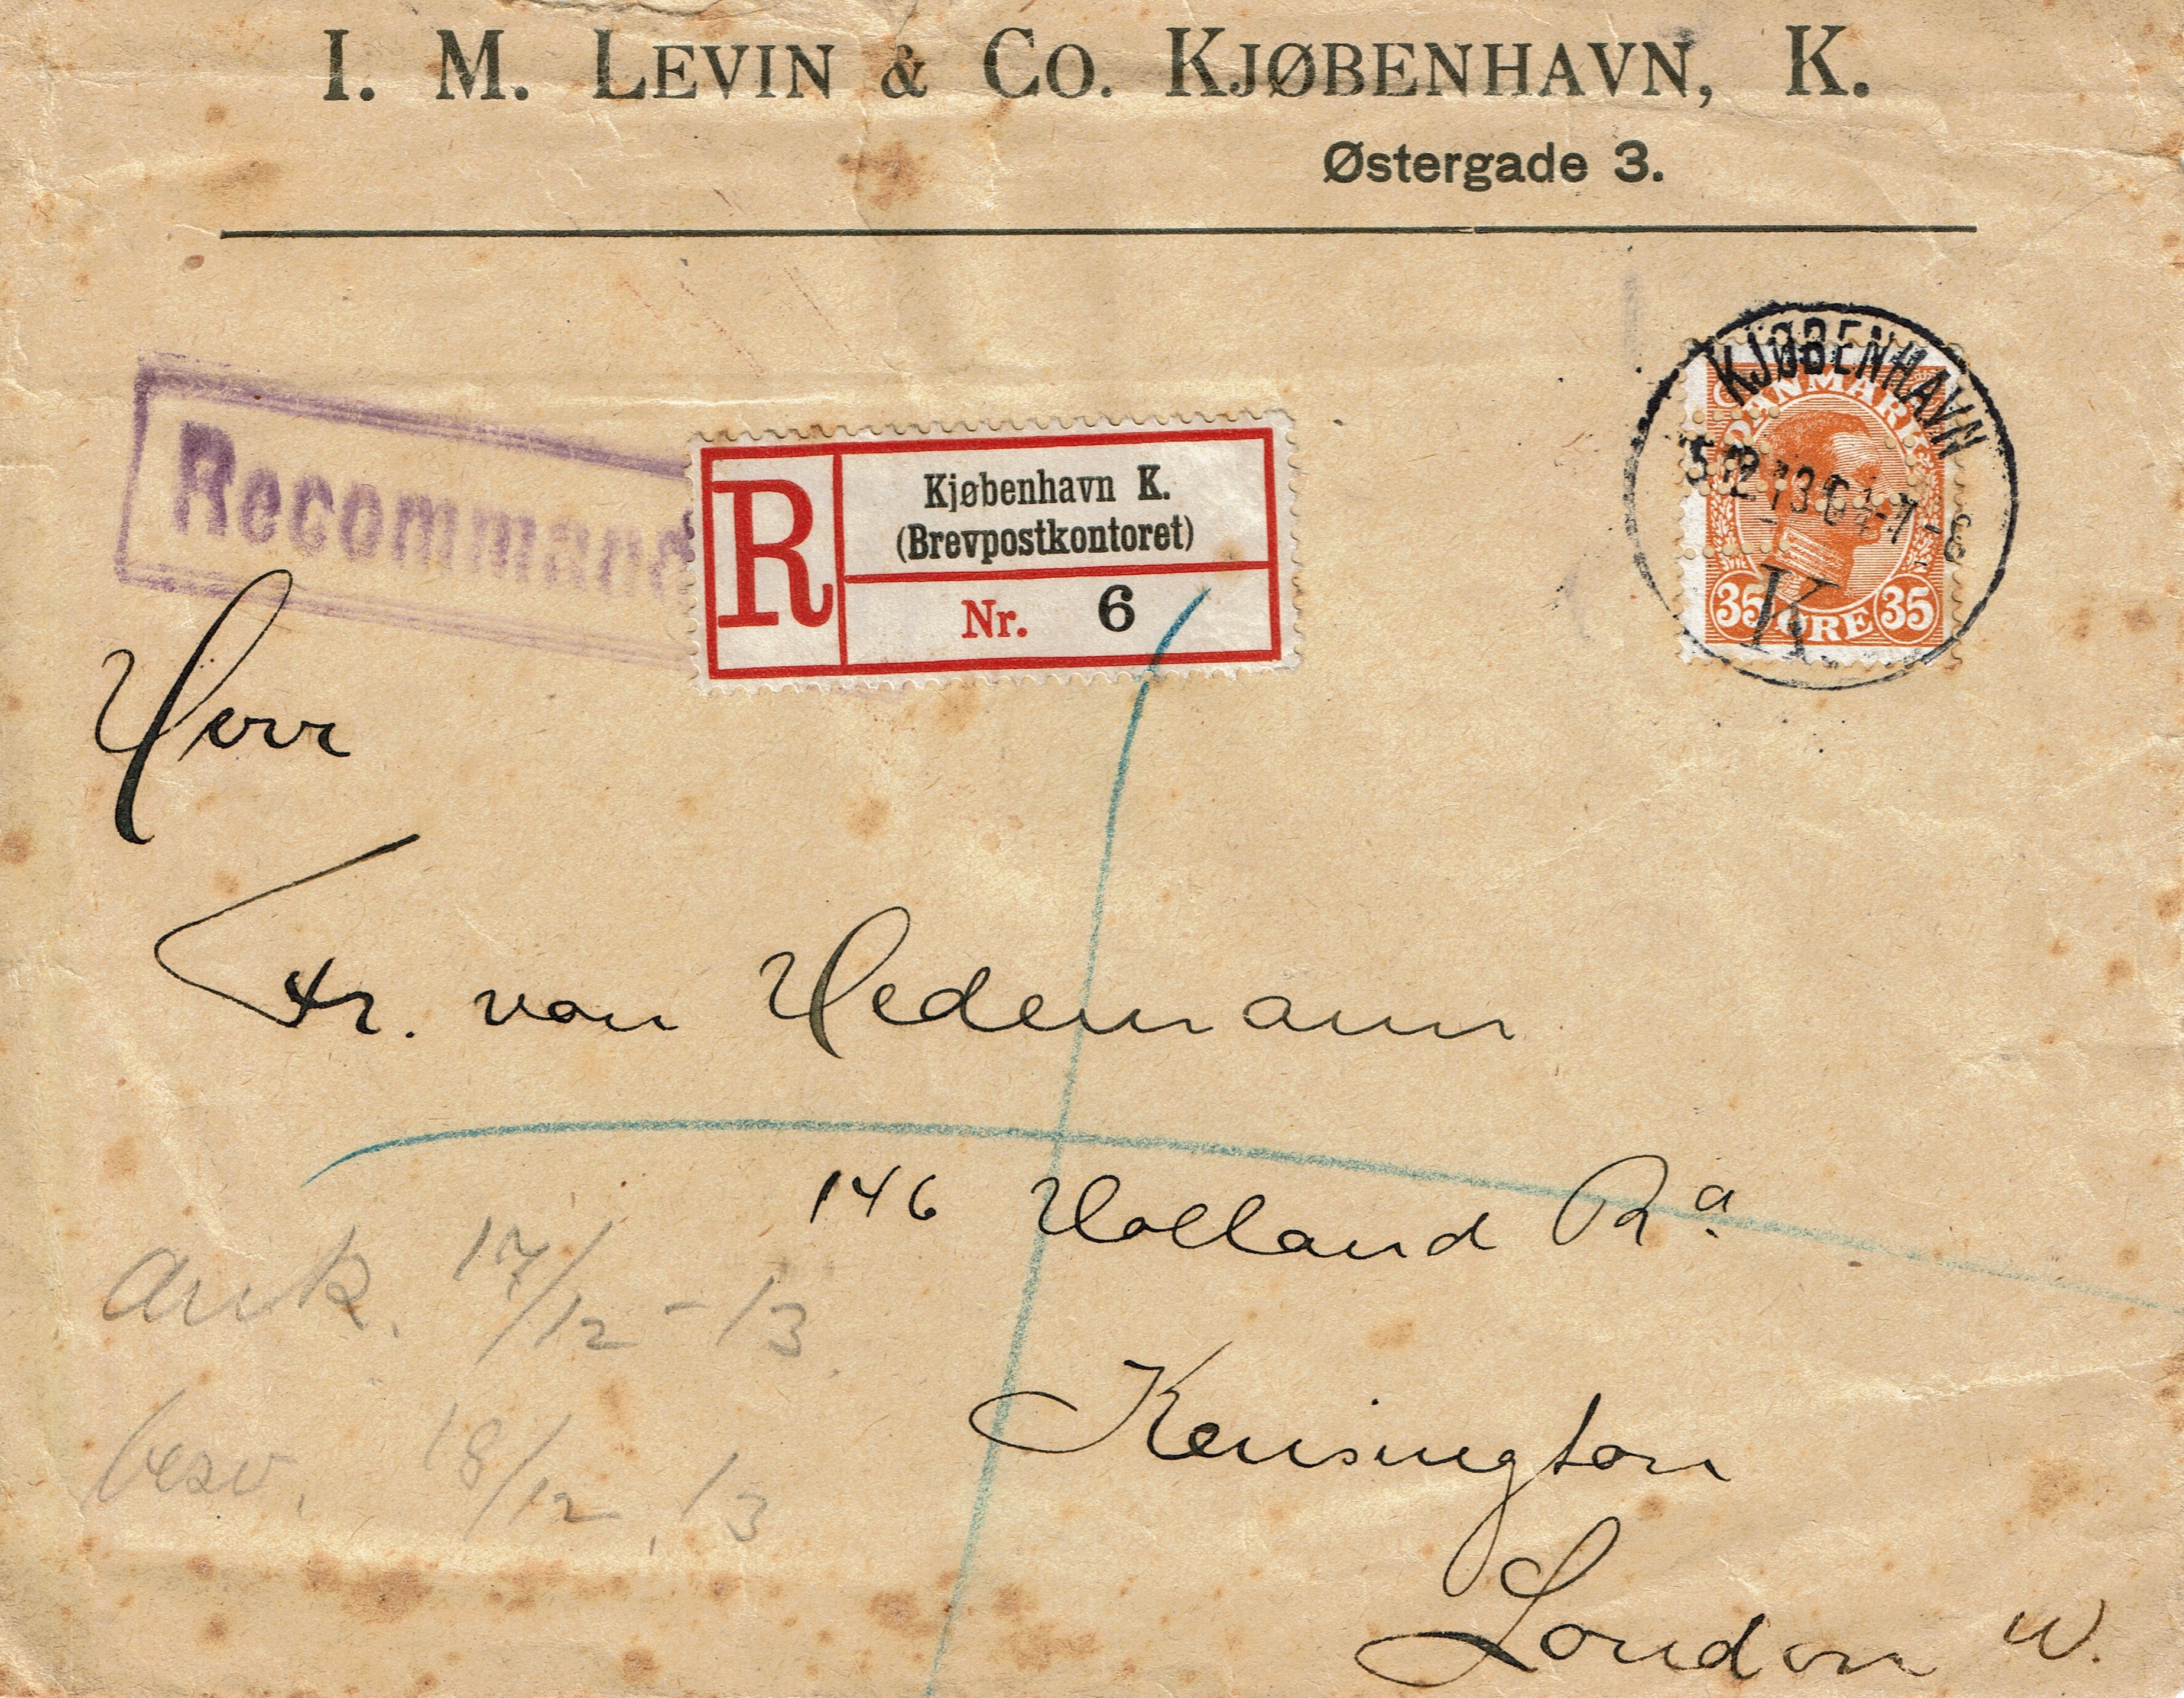 I. M. LEVIN & CO. KJØBENHAVN, K.
Østergade 3.
KJØBENHAVN
DANMARK
K.
35 ØRE 35
Recommand
R
Kjøbenhavn K.
(Brevpostkontoret)
Nr. 6
Herr
Fr. von Hedemann
146 Holland Rd
Kensington
London W.
ank. 17/12 - 13
besv. 18/12. 13